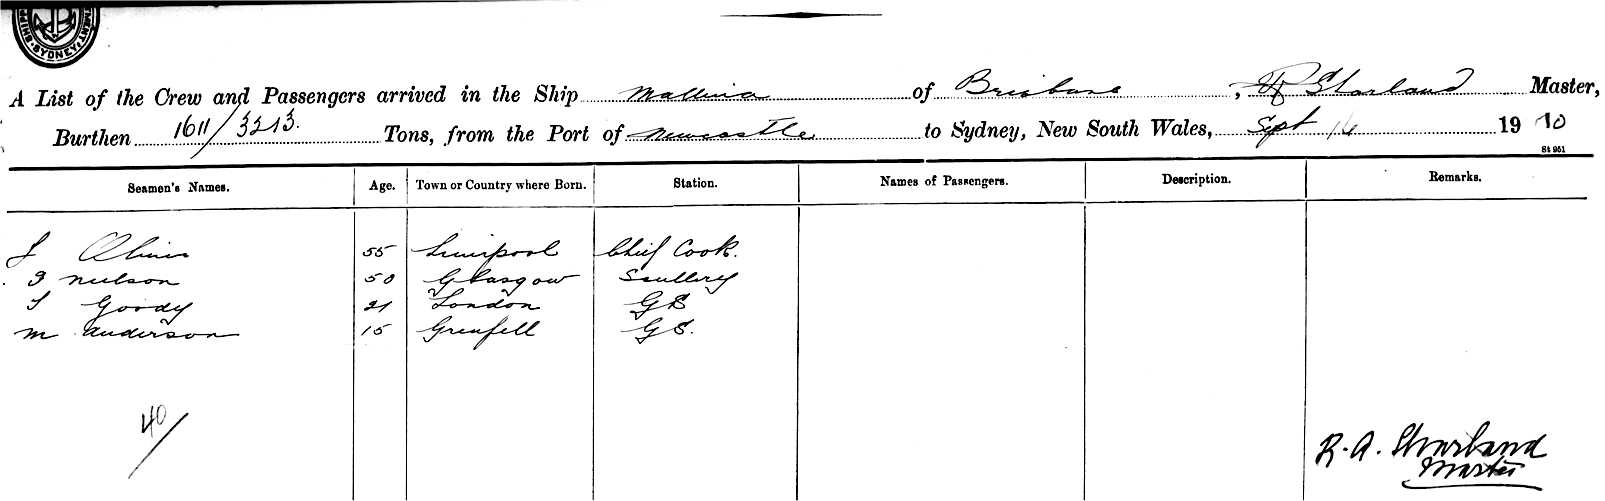 SYDNEY
A List of the Crew and Passengers arrived in the Ship Mallina of Brisbane, Master,
Burthen 1611/3213. Tons, from the Port of Newcastle to Sydney, New South Wales, Sept 14 1910
St 951
Seamen's Names. Age. Town or Country where Born. Station. Names of Passengers. Description. Remarks.
J 55 Liverpool Chief Cook.
Neilson 50 Glasgow Scullery
Goody 21 London GS
M Anderson 15 Grenfell GS.
40/
R. A.
Master